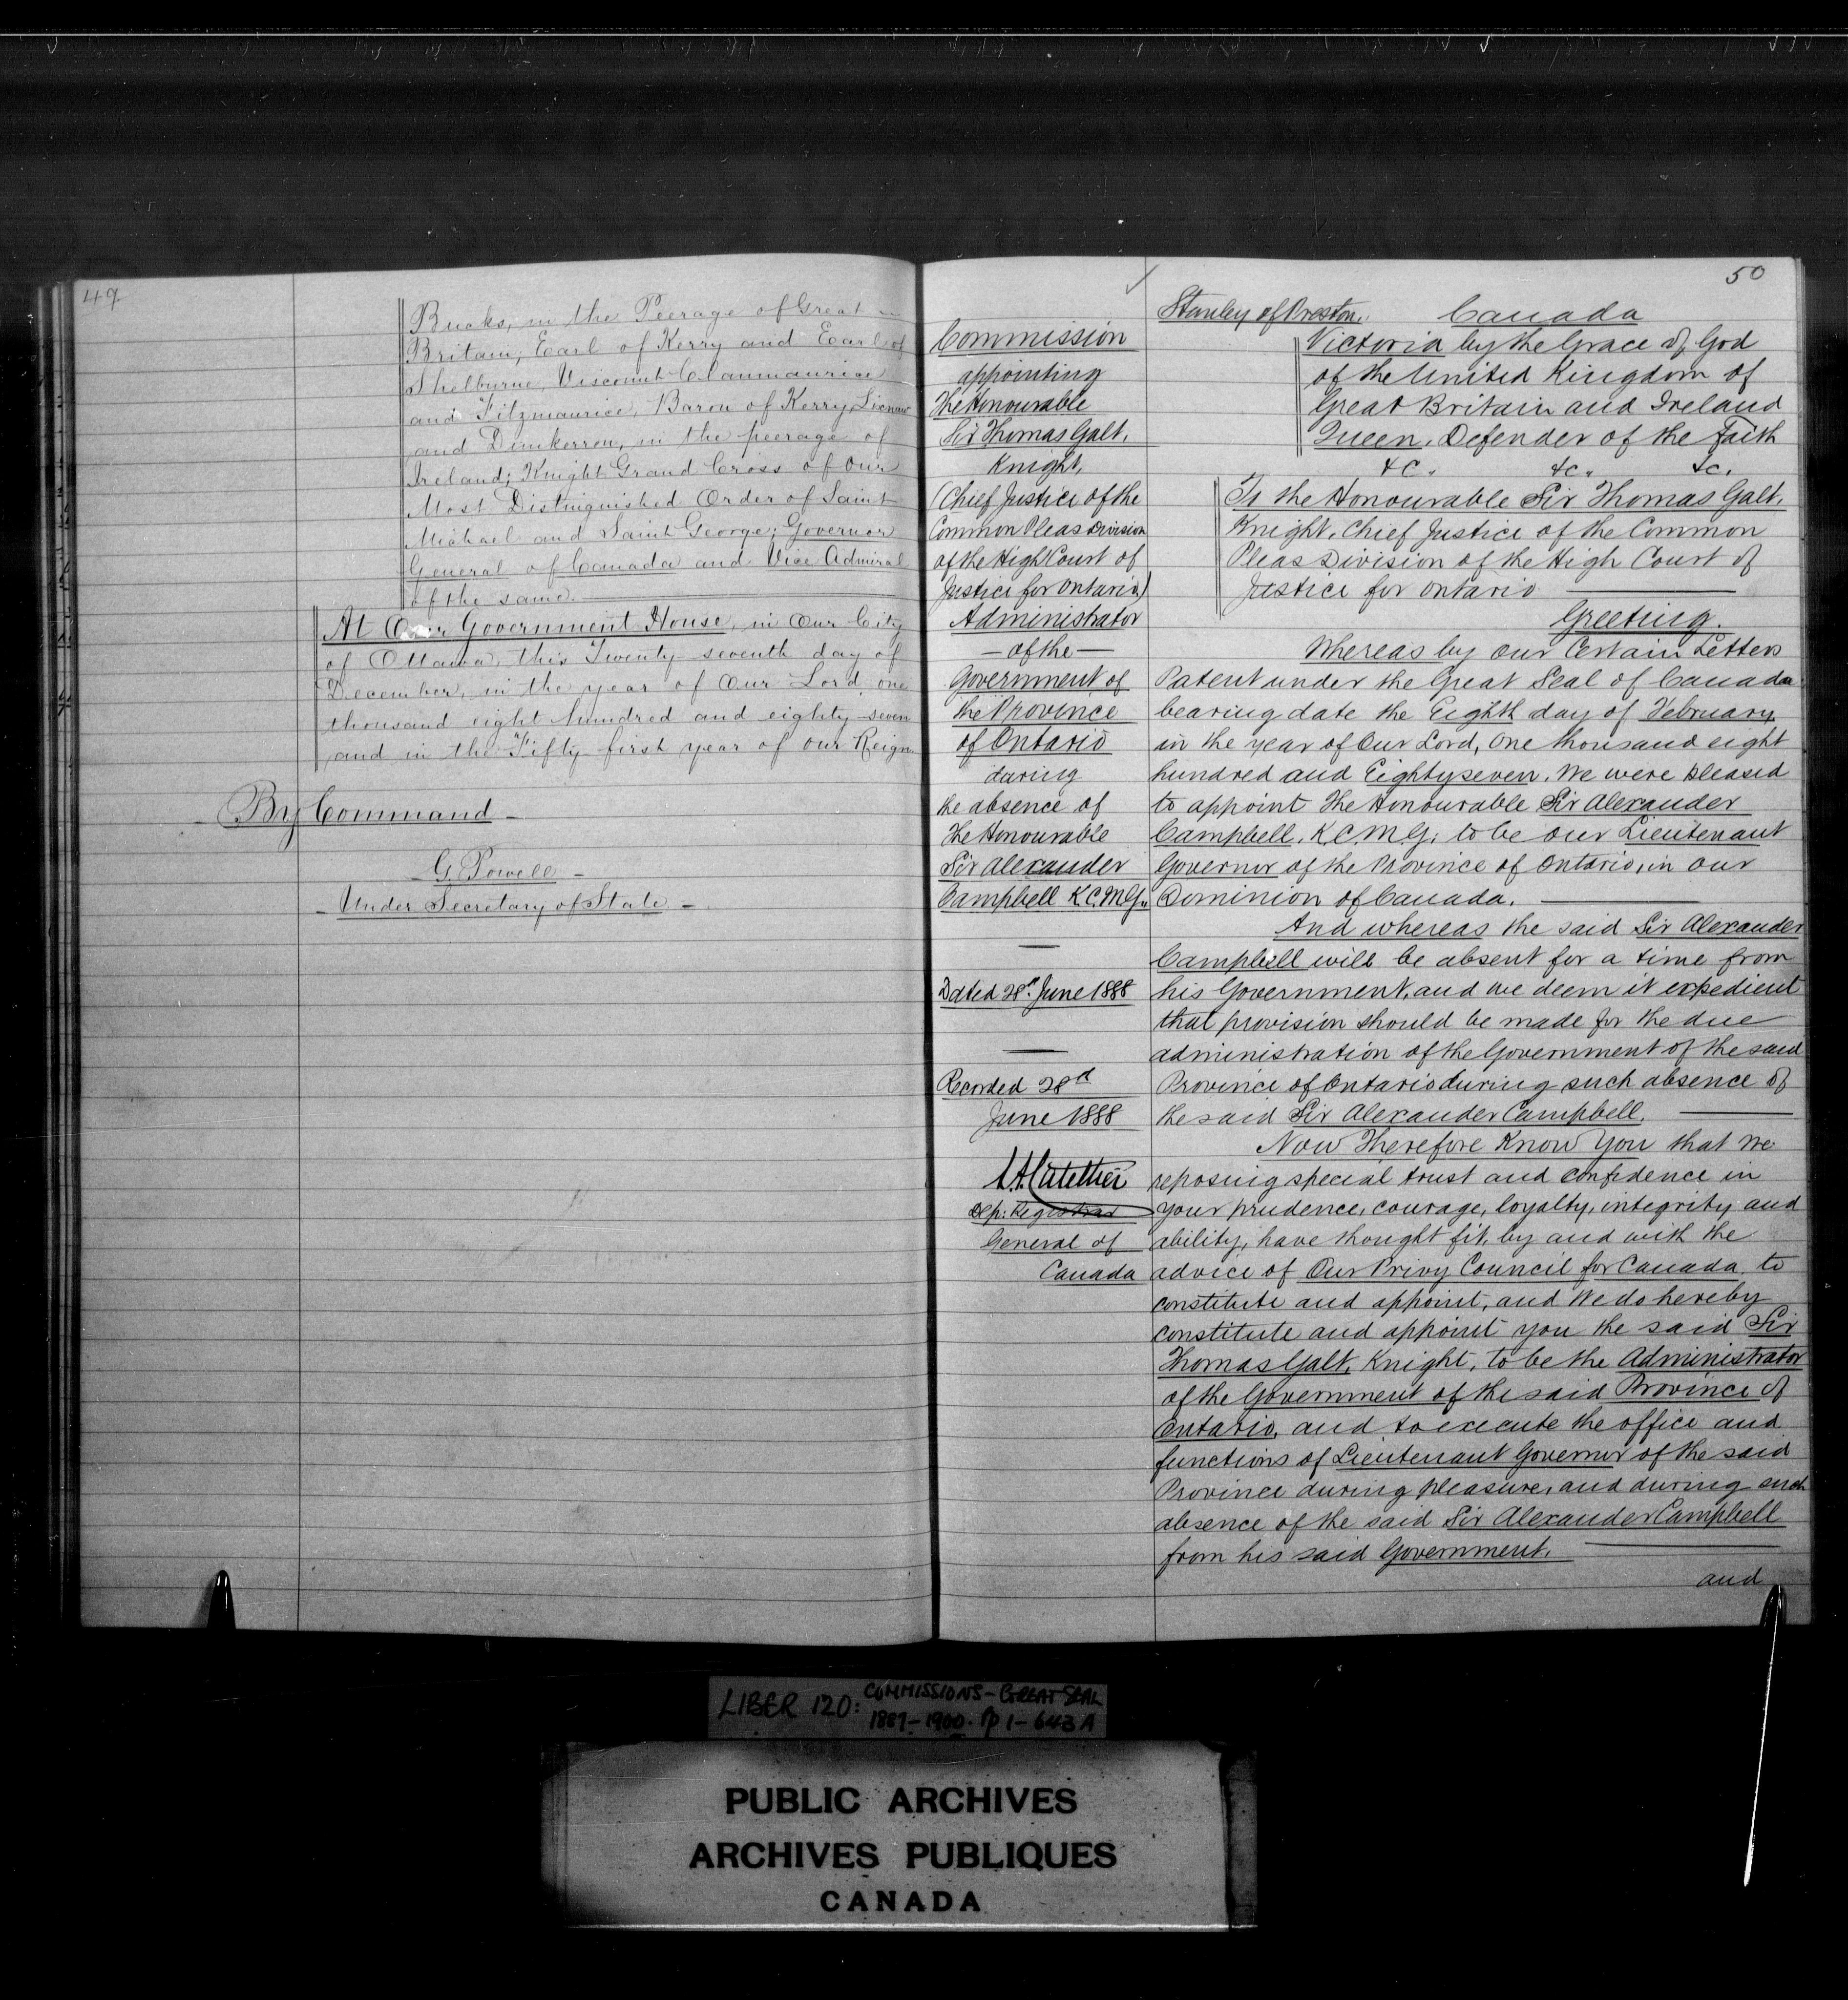 49
Bucks, in the Peerage of Great
Britain; Earl of Kerry and Earl of
Shelburne, Viscount Clanmaurice
and Fitzmaurice, Baron of Kerry, Lixnaw
and Dunkerron, in the peerage of
Ireland; Knight Grand Cross of Our
Most Distinguished Order of Saint
Michael and Saint George; Governor
General of Canada and Vice Admiral
of the same.
At Our Government House, in Our City
of Ottawa, this Twenty seventh day of
December, in the year of Our Lord, one
thousand eight hundred and eighty seven
and in the Fifty first year of Our Reign.
By Command
G. Powell
Under Secretary of State
50
Commission
appointing
The Honourable
Sir Thomas Galt,
Knight,
(Chief Justice of the
Common Pleas Division
of the High Court of
Justice for Ontario)
Administrator
of the
Government of
the Province
of Ontario
during
the absence of
The Honourable
Sir Alexander
Campbell K.C.M.G.
Dated 28th June 1888
Recorded 28th
June 1888
Dep: Registrar
General of
Canada
Stanley of Preston. Canada
Victoria by the Grace of God
of the United Kingdom of
Great Britain and Ireland
Queen, Defender of the Faith
&c. &c. &c.
To the Honourable Sir Thomas Galt,
Knight, Chief Justice of the Common
Pleas Division of the High Court of
Justice for Ontario
Greeting.
Whereas by our Certain Letters
Patent under the Great Seal of Canada
bearing date the Eighth day of February
in the year of Our Lord, One thousand eight
hundred and Eighty seven. We were pleased
to appoint The Honourable Sir Alexander
Campbell, K.C.M.G. to be our Lieutenant
Governor of the Province of Ontario, in our
Dominion of Canada.
And whereas the said Sir Alexander
Campbell will be absent for a time from
his Government, and we deem it expedient
that provision should be made for the due
administration of the Government of the said
Province of Ontario during such absence of
the said Sir Alexander Campbell.
Now Therefore Know You that We
reposing special trust and confidence in
your prudence, courage, loyalty, integrity and
ability, have thought fit, by and with the
advice of Our Privy Council for Canada to
constitute and appoint, and We do hereby
constitute and appoint you the said Sir
Thomas Galt, Knight, to be the Administrator
of the Government of the said Province of
Ontario, and to execute the office and
functions of Lieutenant Governor of the said
Province during pleasure, and during such
absence of the said Sir Alexander Campbell
from his said Government.
and
LIBER 120: COMMISSIONS - GREAT SEAL
1887-1900. pp 1-643A
PUBLIC ARCHIVES
ARCHIVES PUBLIQUES
CANADA